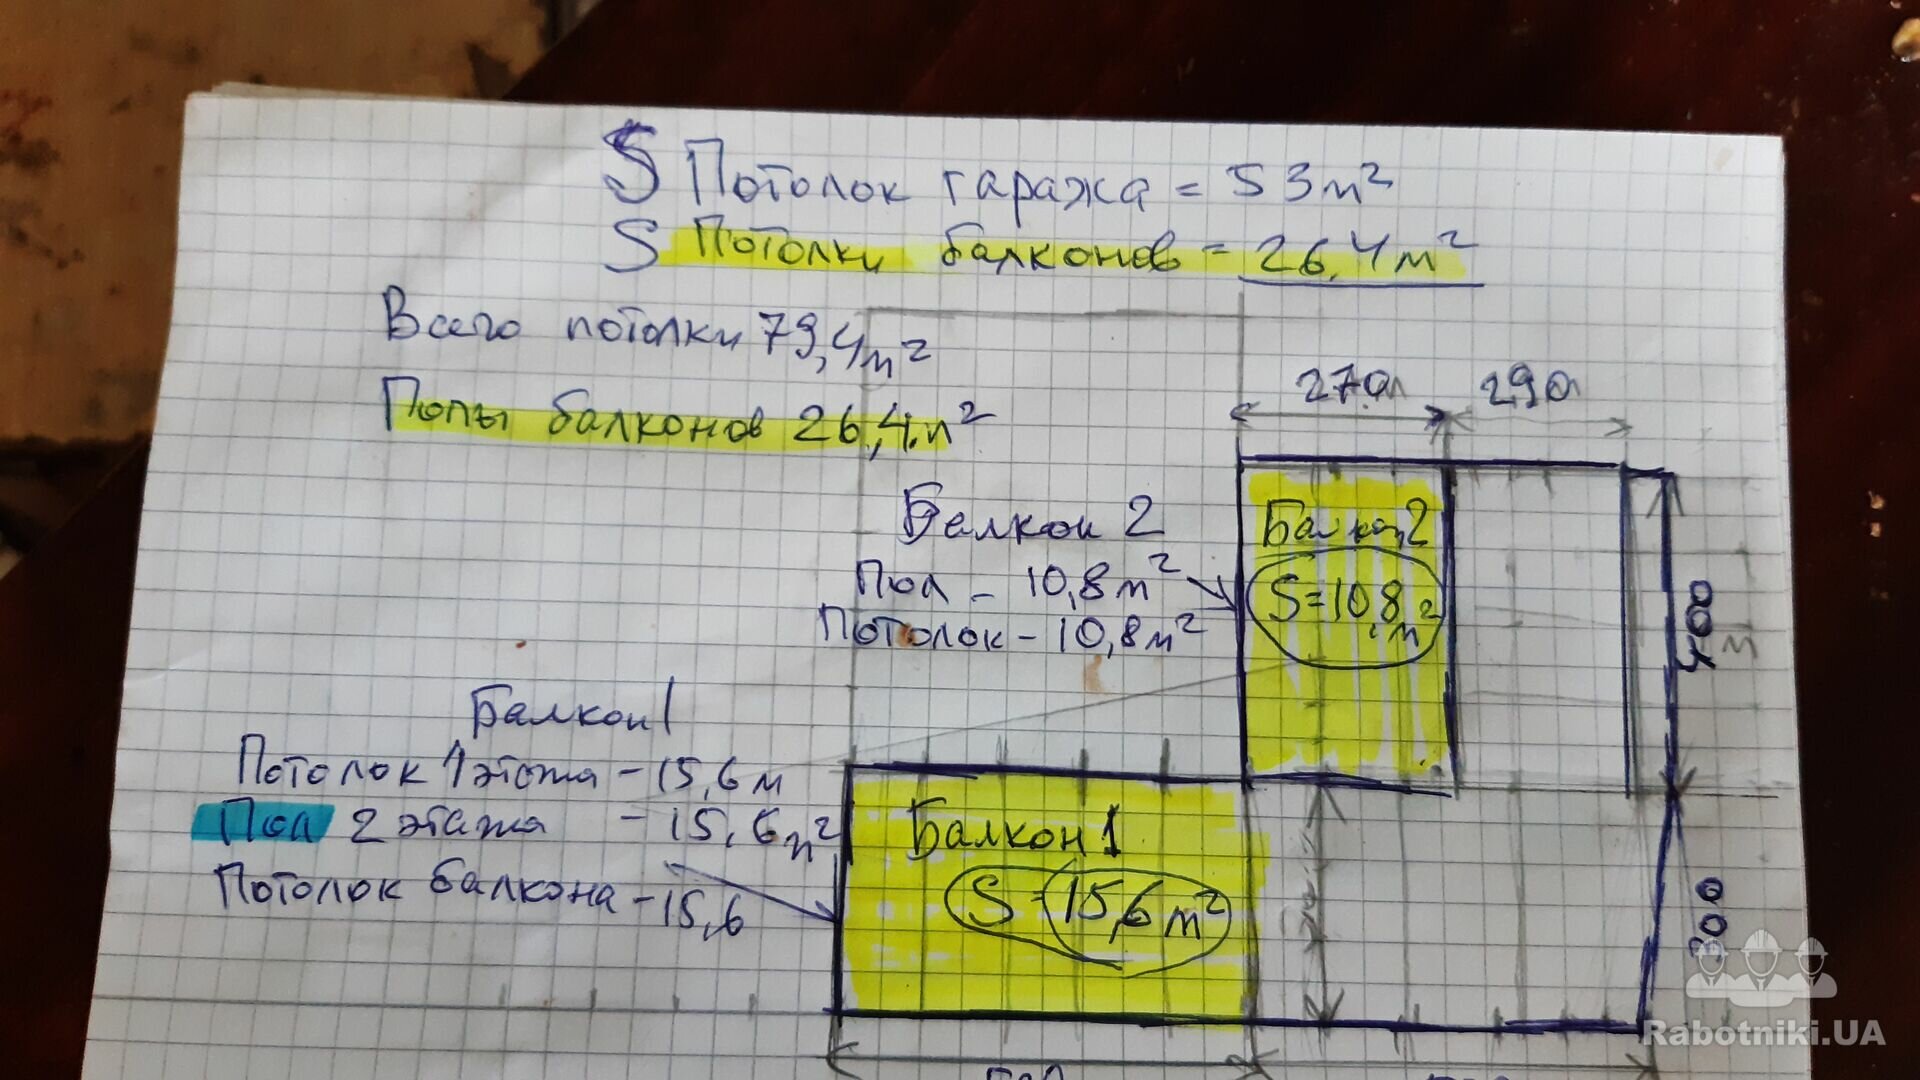 S Потолок гаража = 53 м²
S Потолки балконов = 26,4 м²
Всего потолки 79,4 м²
Полы балконов 26,4 м²
270 290
Балкон 2
Пол - 10,8 м²
Потолок - 10,8 м²
Балкон 2
S = 10,8 м²
400
Балкон 1
Потолок 1 этажа - 15,6 м
Пол 2 этажа - 15,6 м²
Потолок балкона - 15,6
Балкон 1
S = 15,6 м²
300
Rabotniki.UA